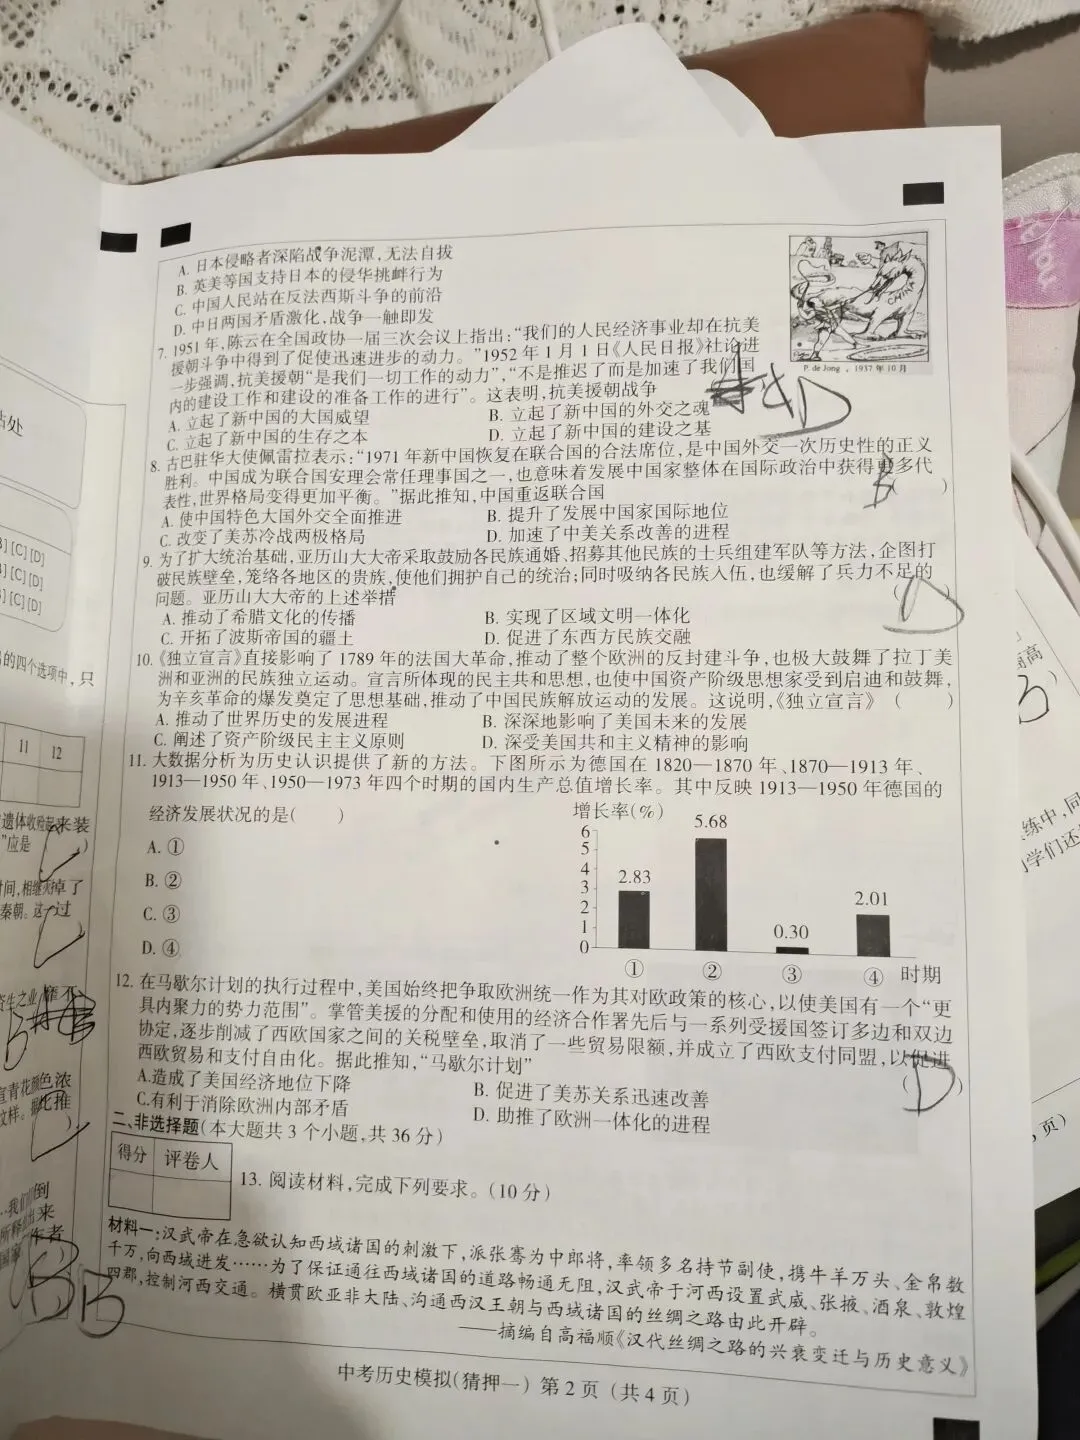 A. 日本侵略者深陷战争泥潭,无法自拔
B. 英美等国支持日本的侵华挑衅行为
C. 中国人民站在反法西斯斗争的前沿
D. 中日两国矛盾激化,战争一触即发
CHINA
P. de Jong , 1937 年 10 月
7. 1951 年,陈云在全国政协一届三次会议上指出:“我们的人民经济事业却在抗美
援朝斗争中得到了促使迅速进步的动力。”1952 年 1 月 1 日《人民日报》社论进
一步强调,抗美援朝“是我们一切工作的动力”,“不是推迟了而是加速了我们国
内的建设工作和建设的准备工作的进行”。这表明,抗美援朝战争
D
A. 立起了新中国的大国威望 B. 立起了新中国的外交之魂
C. 立起了新中国的生存之本 D. 立起了新中国的建设之基
8. 古巴驻华大使佩雷拉表示:“1971 年新中国恢复在联合国的合法席位,是中国外交一次历史性的正义
胜利。中国成为联合国安理会常任理事国之一,也意味着发展中国家整体在国际政治中获得更多代
表性,世界格局变得更加平衡。”据此推知,中国重返联合国 ( )
B
A. 使中国特色大国外交全面推进 B. 提升了发展中国家国际地位
C. 改变了美苏冷战两极格局 D. 加速了中美关系改善的进程
9. 为了扩大统治基础,亚历山大大帝采取鼓励各民族通婚、招募其他民族的士兵组建军队等方法,企图打
破民族壁垒,笼络各地区的贵族,使他们拥护自己的统治;同时吸纳各民族入伍,也缓解了兵力不足的
问题。亚历山大大帝的上述举措 ( D )
A. 推动了希腊文化的传播 B. 实现了区域文明一体化
C. 开拓了波斯帝国的疆土 D. 促进了东西方民族交融
10.《独立宣言》直接影响了 1789 年的法国大革命,推动了整个欧洲的反封建斗争,也极大鼓舞了拉丁美
洲和亚洲的民族独立运动。宣言所体现的民主共和思想,也使中国资产阶级思想家受到启迪和鼓舞,
为辛亥革命的爆发奠定了思想基础,推动了中国民族解放运动的发展。这说明,《独立宣言》 ( )
A. 推动了世界历史的发展进程 B. 深深地影响了美国未来的发展
C. 阐述了资产阶级民主主义原则 D. 深受美国共和主义精神的影响
11. 大数据分析为历史认识提供了新的方法。下图所示为德国在 1820—1870 年、1870—1913 年、
1913—1950 年、1950—1973 年四个时期的国内生产总值增长率。其中反映 1913—1950 年德国的
经济发展状况的是( )
A. ①
B. ②
C. ③
D. ④
增长率(%)
6
5
4
3
2
1
0
2.83
5.68
0.30
2.01
① ② ③ ④ 时期
12. 在马歇尔计划的执行过程中,美国始终把争取欧洲统一作为其对欧政策的核心,以使美国有一个“更
具内聚力的势力范围”。掌管美援的分配和使用的经济合作署先后与一系列受援国签订多边和双边
协定,逐步削减了西欧国家之间的关税壁垒,取消了一些贸易限额,并成立了西欧支付同盟,以促进
西欧贸易和支付自由化。据此推知,“马歇尔计划” ( D )
A.造成了美国经济地位下降 B. 促进了美苏关系迅速改善
C.有利于消除欧洲内部矛盾 D. 助推了欧洲一体化的进程
二、非选择题(本大题共 3 个小题,共 36 分)
得分 评卷人
13. 阅读材料,完成下列要求。(10 分)
材料一:汉武帝在急欲认知西域诸国的刺激下,派张骞为中郎将,率领多名持节副使,携牛羊万头、金帛数
千万,向西域进发……为了保证通往西域诸国的道路畅通无阻,汉武帝于河西设置武威、张掖、酒泉、敦煌
四郡,控制河西交通。横贯欧亚非大陆、沟通西汉王朝与西域诸国的丝绸之路由此开辟。
——摘编自高福顺《汉代丝绸之路的兴衰变迁与历史意义》
中考历史模拟(猜押一) 第 2 页 (共 4 页)
[C] [D]
[C] [D]
[C] [D]
的四个选项中,只
11 12
B
B